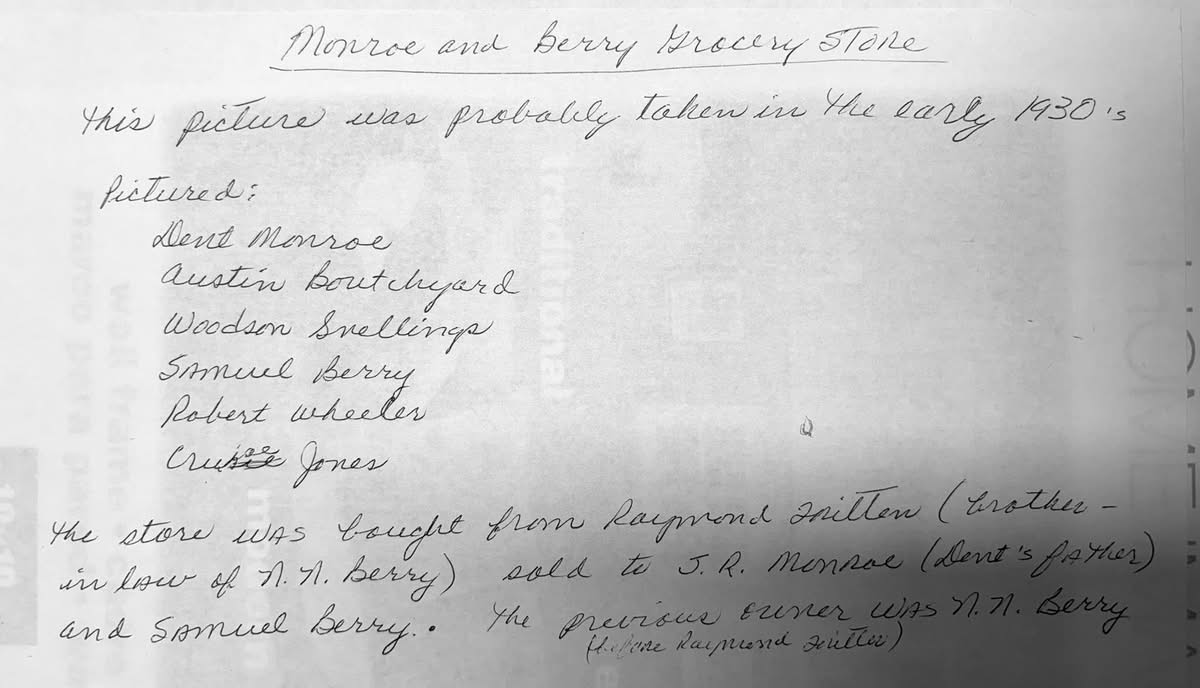 Monroe and Berry Grocery Store
This picture was probably taken in the early 1930's
Pictured:
Dent Monroe
Austin Boutchyard
Woodson Snellings
Samuel Berry
Robert Wheeler
Jones
The store was bought from Raymond (brother-
in law of N. N. Berry) sold to J. R. Monroe (Dent's father)
and Samuel Berry. The previous owner was N. N. Berry
(before Raymond)